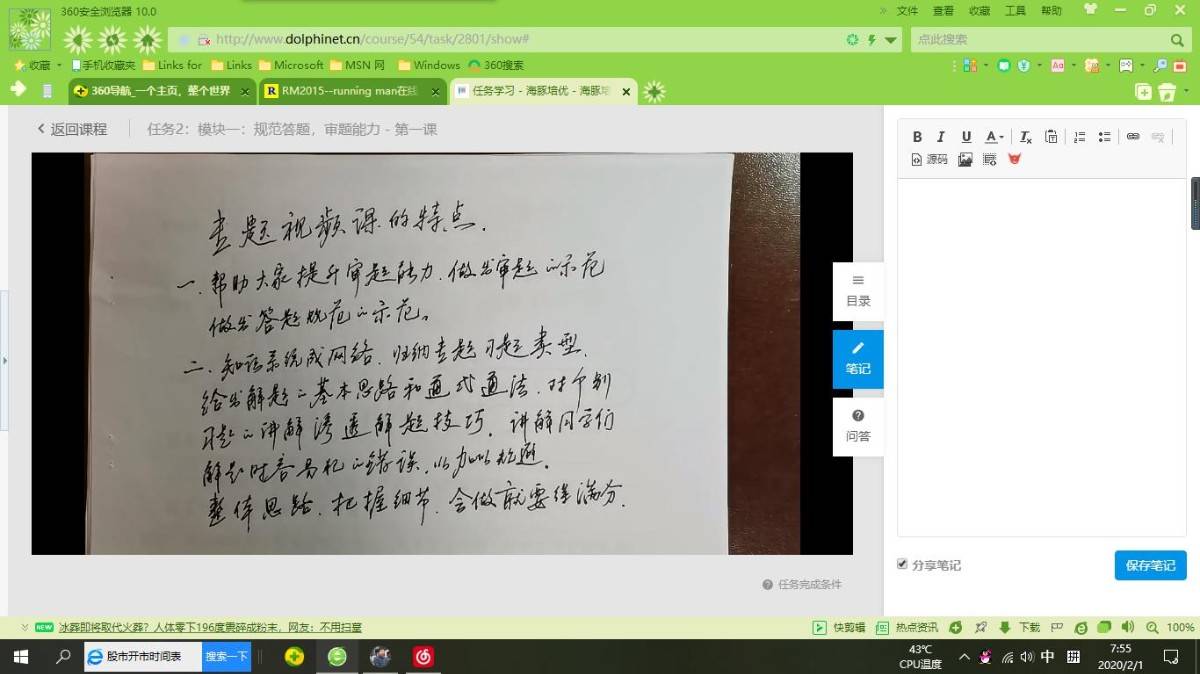 360安全浏览器 10.0
文件 查看 收藏 工具 帮助
http://www.dolphinet.cn/course/54/task/2801/show#
点此搜索
收藏 手机收藏夹 Links for Links Microsoft MSN 网 Windows 360搜索
360导航_一个主页,整个世界
RM2015--running man在线
任务学习 - 海豚培优 - 海豚培
返回课程
任务2:模块一:规范答题,审题能力 - 第一课
查题视频课的特点.
一.帮助大家提升审题能力.做出审题的示范
做出答题规范的示范。
二、知识系统成网络.归纳查题习题类型.
给出解题的基本思路和通式通法.对个别
习题的讲解渗透解题技巧.讲解同学们
解题时容易犯的错误.以加以规避.
整体思路.把握细节.会做就要得满分.
目录
笔记
问答
源码
任务完成条件
分享笔记
保存笔记
NEW 冰葬即将取代火葬?人体零下196度震碎成粉末,网友:不用扫墓
快剪辑 热点资讯 下载 100%
股市开市时间表 搜索一下
43℃
CPU温度
中 拼
7:55
2020/2/1